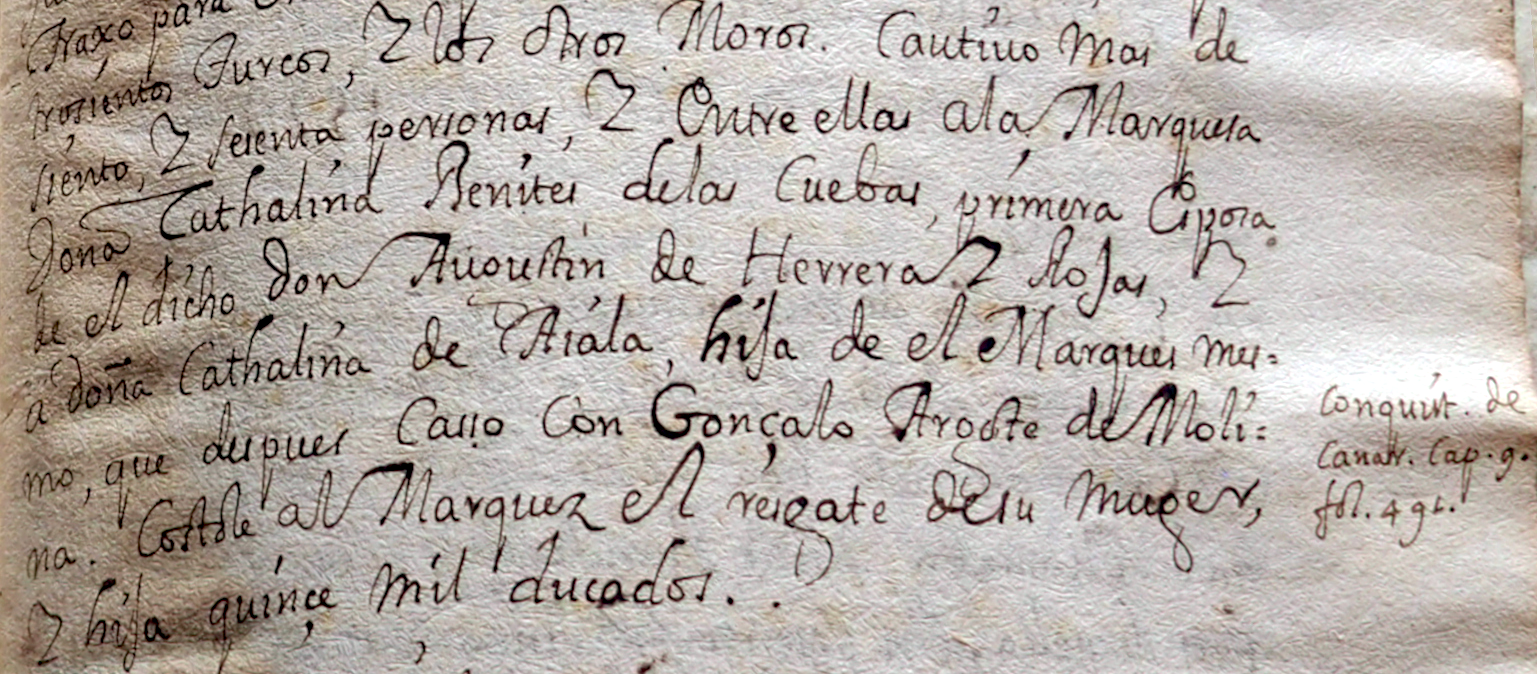 Traxo para
trosientos Turcos, Y los otros Moros. Cautiuo mas de
siento, Y sesenta personas, Y Entre ellas ala Marquesa
Dona Cathalina Benites delas Cuebas, primera Esposa
de el dicho Don Augustin de Herrera Y Rojas, Y
a doña Cathalina de Aiala, hija de el Marques mis=
mo, que despues Casso Con Gonçalo Argote de Moli=
na. Costole al Marquez el resgate de su Muger,
Y hija quinçe mil ducados.
Conquist. de
Canar. Cap. 9.
fol. 491.